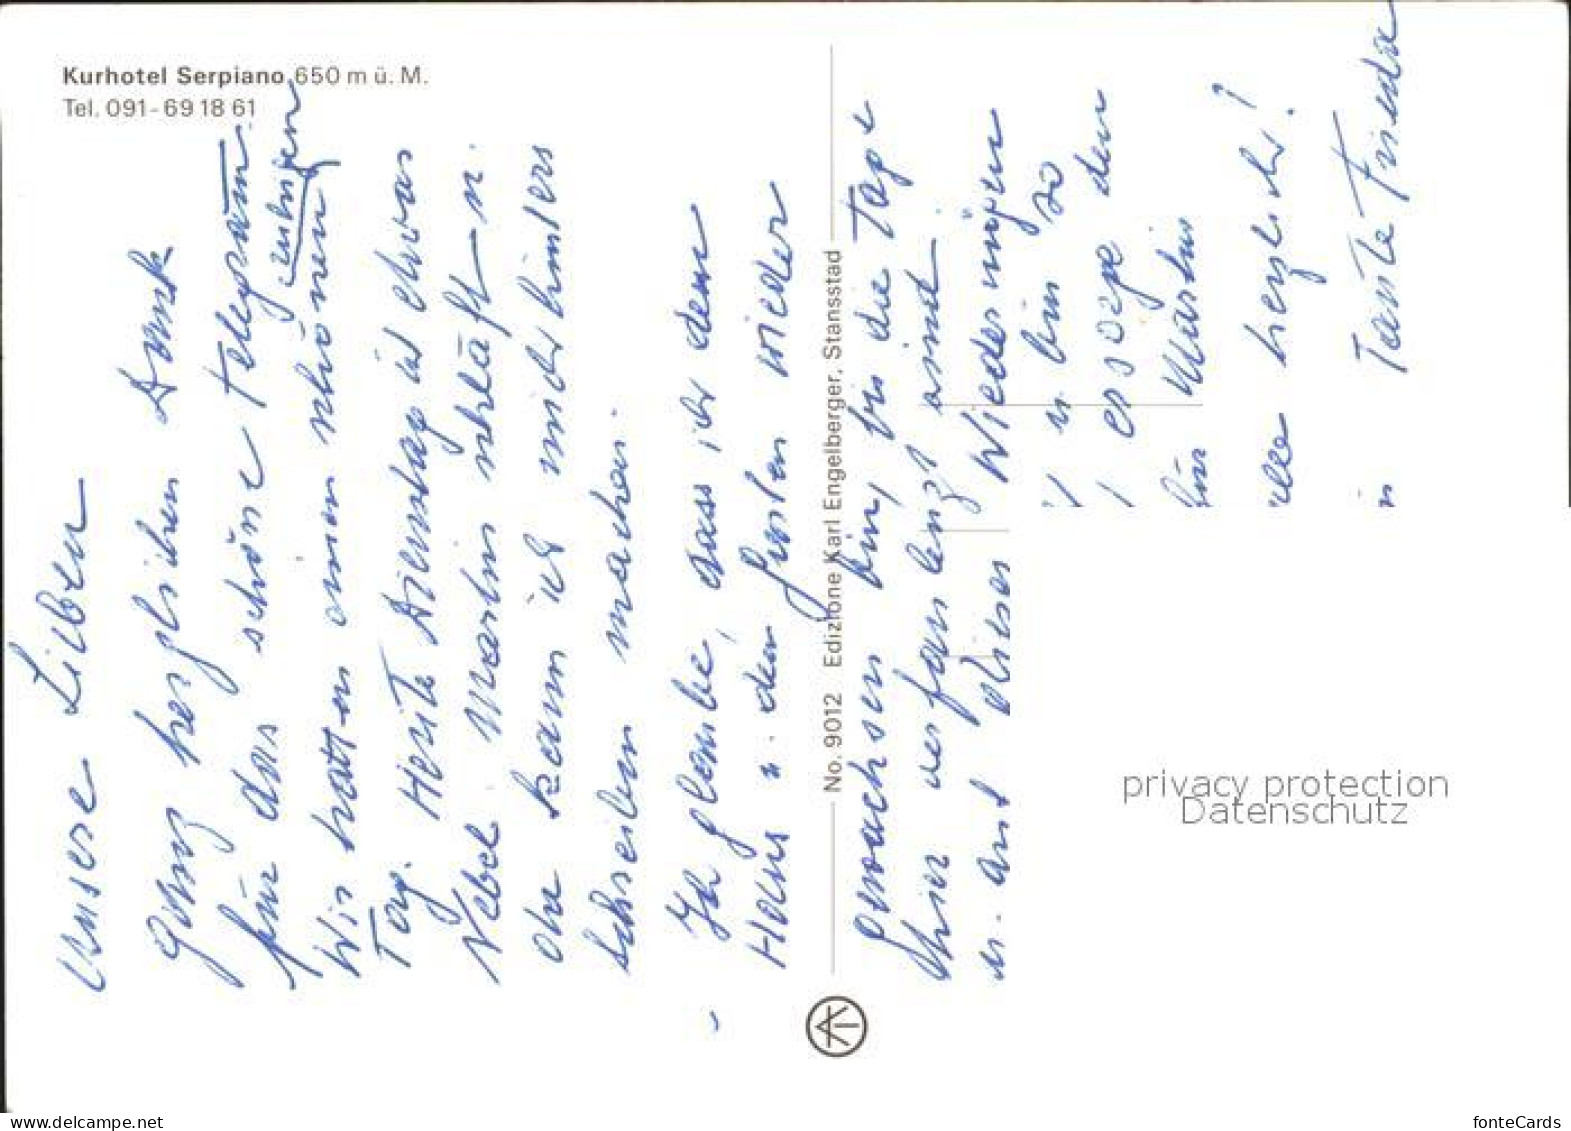 Kurhotel Serpiano 650 m ü. M.
Tel. 091-69 18 61
Unsere Lieben
Ganz herzlichen Dank
für das schöne Telegramm.
Wir hatten einen schönen ruhigen
Tag. Heute Dienstag ist etwas
Nebel. Martin schläft u.
da kann ich nicht hinters
schreiben machen.
Ich glaube, dass ich dem
Haus u. dem Garten wieder
gewachsen bin, bis die Tage
hier verfaulenzt sind.
u. auf dieses Wiedermögen
u. bin so
ersorge den
für Martin
alle herzlich!
Tante Frieda
No. 9012 Edizione Karl Engelberger, Stansstad
privacy protection
Datenschutz
www.delcampe.net
fonteCards